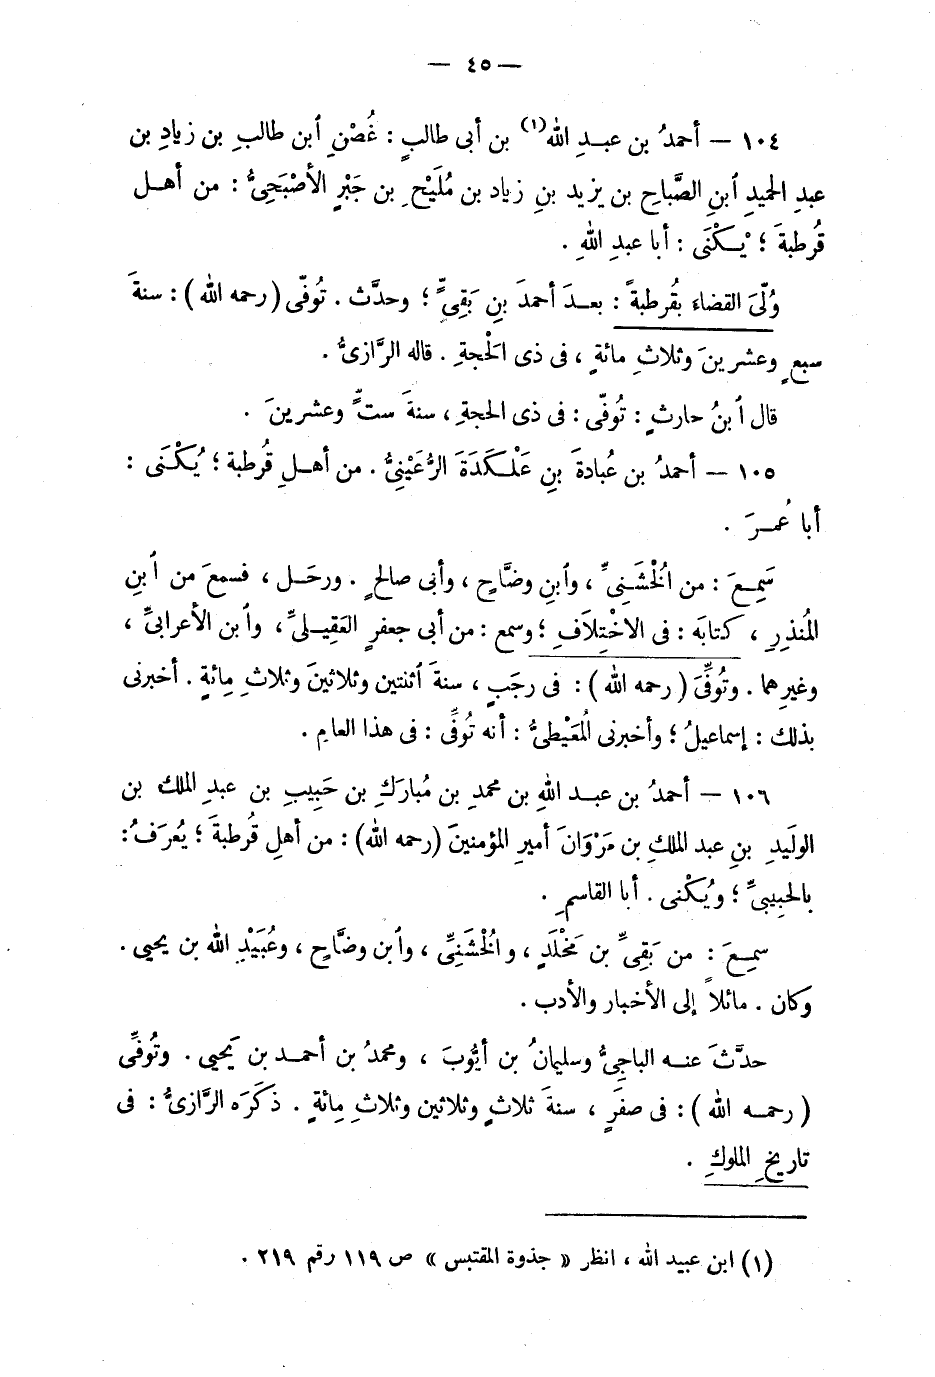 — ٤٥ —
١٠٤ — أحمدُ بن عبـدِ الله(١) بن أبى طالبٍ : غُصْنِ ٱبن طالبِ بن زيادِ بن
عبدِ الحميدِ ٱبنِ الصَّباحِ بن يزيد بنِ زياد بن مُلَيْحِ بن جَبْرٍ الأصْبَحِىُّ : من أهـل
قُرطبةَ ؛ يُـكْنَى : أبا عبدِ اللهِ .
وُلّىَ القضاء بقُرطبةً : بعـدَ أحمدَ بنِ بَقِىٍّ ؛ وحدَّث . تُوفّى ( رحمه الله ) : سنةَ
سبعٍ وعشرينَ وثلاثِ مائةٍ ، فى ذى الحْجةِ . قاله الرَّازىُّ .
قال ٱبنُ حارثٍ : تُوفّى : فى ذى الحجةِ ، سنةَ ستٍّ وعشرينَ .
١٠٥ — أحمدُ بن عُبادةَ بنِ عَلْـكَدَةَ الرُّعَيْنِىُّ . من أهـلِ قُرطبة ؛ يُكْـنَى :
أبا عُمـرَ .
سَمِـعَ : من الُخْشَـنِىِّ ، وٱبنِ وضَّاحٍ ، وأبى صالحٍ . ورحَـل ، فسمعَ من ٱبنِ
المُنذرِ ، كتابَه : فى الاخْتِلَافِ ؛ وسمع : من أبى جعفرٍ العَقِيـلىِّ ، وٱبن الأعرابىِّ ،
وغيرِهما . وتُوفِّىَ ( رحمه الله ) : فى رجَبٍ ، سنةَ ٱثنتين وثلاثينَ وثلاثِ مِائةٍ . أخبرنى
بذلك : إسماعيلُ ؛ وأخبرنى المُعَيْطىُّ : أنه تُوفِّى : فى هذا العامِ .
١٠٦ — أحمدُ بن عبـد اللهِ بن محمدِ بن مُبارَكِ بن حَبِيبِ بن عبدِ الملك بن
الوَليدِ بنِ عبد الملكِ بن مَرْوَانَ أميرِ المؤمنينَ (رحمه الله) : من أهلِ قُرطبةَ ؛ يُعرَفُ :
بالحبِيبىِّ ؛ ويُكْنى . أبا القاسمِ .
سمِـعَ : من بَقِىِّ بن مَخْلَدٍ ، والُخْشَنِىِّ ، وٱبن وضَّاحٍ ، وعُبَيْدِ الله بن يحيى .
وكان . مائلاً إلى الأخبار والأدب .
حدَّثَ عنـه الباجِىُّ وسليمانُ بن أيُّوبَ ، ومحمدُ بن أحمـد بن يَحيى . وتُوفِّى
( رحمـه الله ) : فى صفرٍ ، سنةَ ثلاثٍ وثلاثين وثلاثِ مِائةٍ . ذكَرَه الرَّازىُّ : فى
تاريخِ الملوكِ .
(١) ابن عبيد الله ، انظر « جذوة المقتبس » ص ١١٩ رقم ٢١٩ .